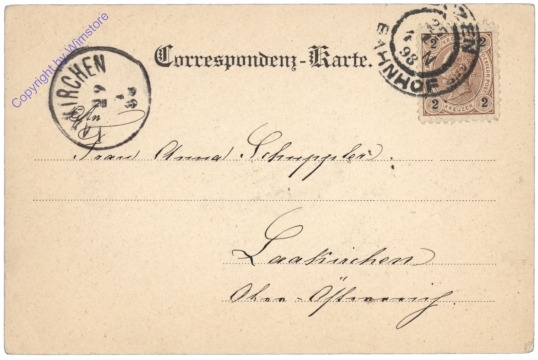 Copyright by Wimstore
KIRCHEN
Correspondenz-Karte.
BAHNHOF
98
2 2
KREUZER
Frau Anna Schuppler
Laakirchen
Ober-Österreich